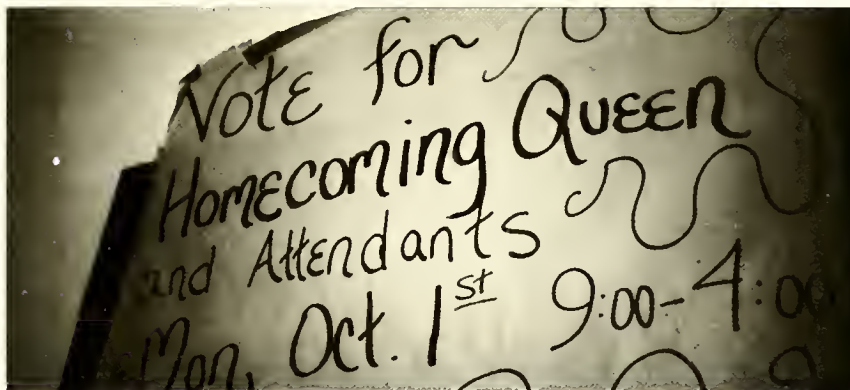 Vote for
Homecoming Queen
and Attendants
Mon, Oct. 1st 9:00-4:00